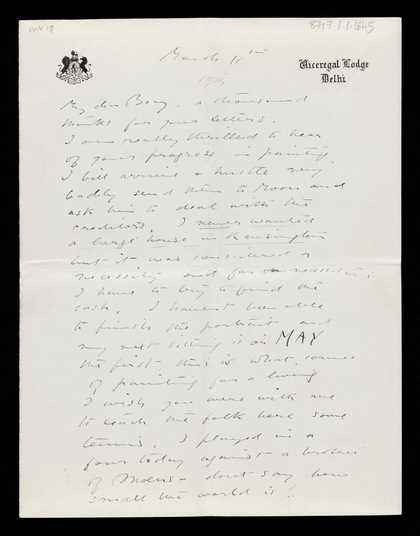 8717.1.1.1645
Viceregal Lodge
Delhi
March 11th
My dear Boxy. a thousand
thanks for your letters.
I am really thrilled to hear
of your progress in painting.
I will
badly send them to Moon and
ask him to deal with the
creditors. I never wanted
a large house in Kensington
but it was considered a
necessity and for
I have to try to find the
cash. I havent been able
to finish the portrait and
my next sitting is in MAY
the first this is what comes
of painting for a living
I wish you were with me
to teach the folk here some
tennis. I played in a
four today against a brother
of dont say how
small the world is!